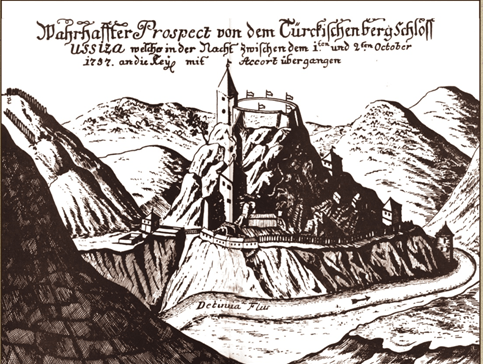 Wahrhaffter Prospect von dem Türckischen berg Schlöss
Ussiza welche in der Nacht zwischen dem 1ten und 2ten October
1737. an die Key mit Accort übergangen
Detinua Flus